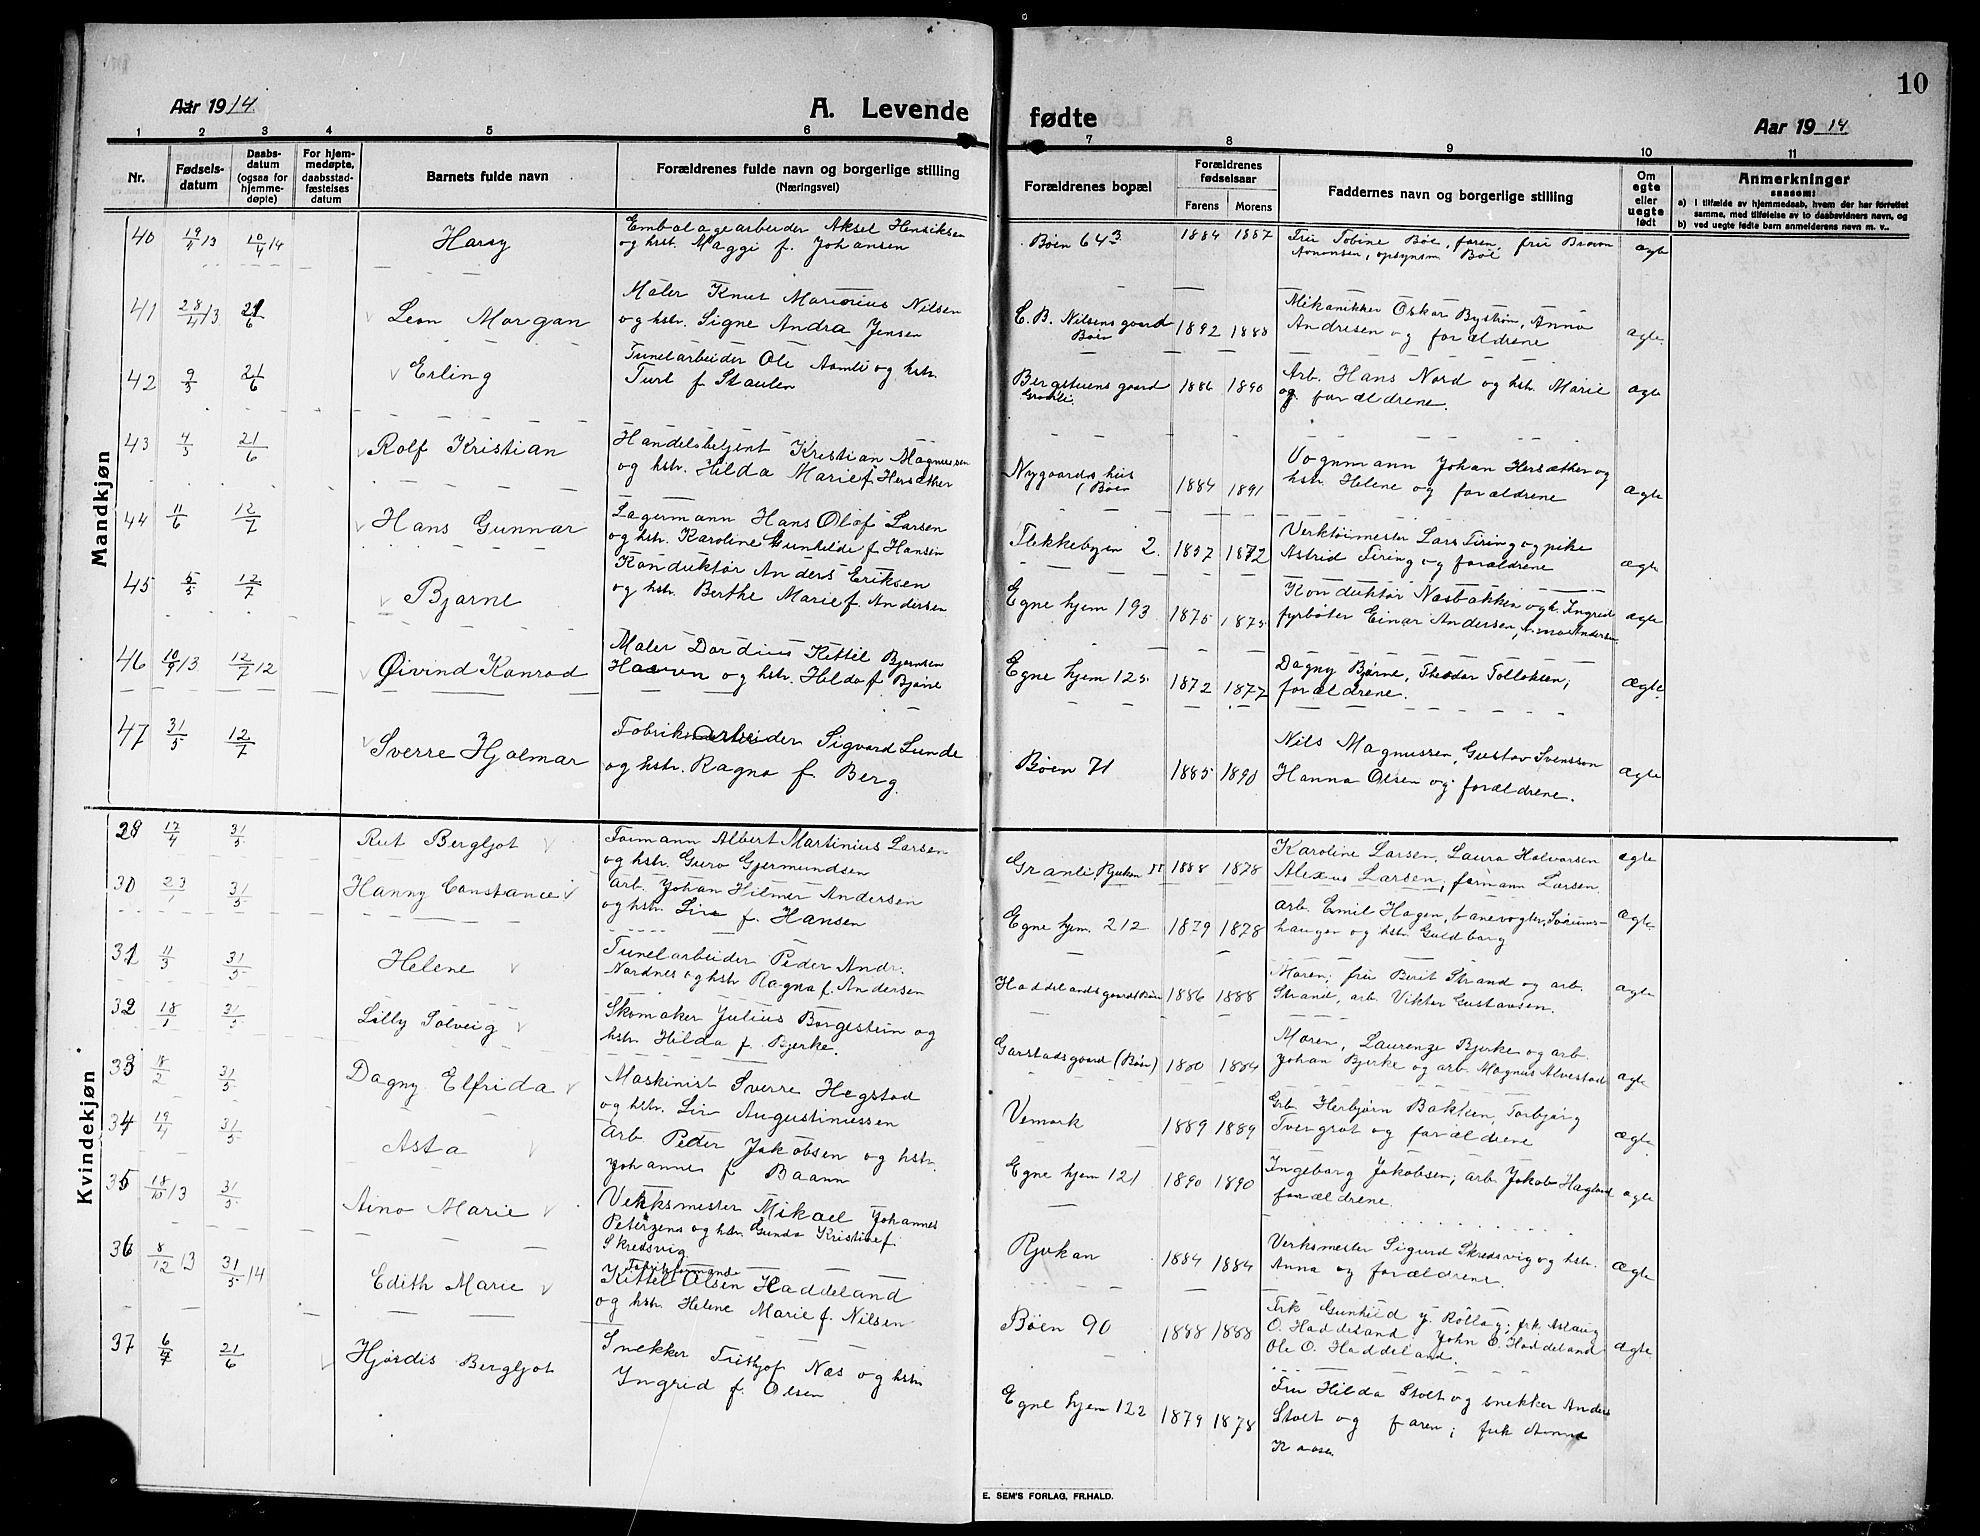 10
Aar 1914.
A. Levende fødte
Aar 1914
1 2 3 4 5 6 7 8 9 10 11
Nr.
Fødsels-
datum
Daabs-
datum
(ogsaa for
hjemme-
døpte)
For hjem-
medøpte,
daabsstad-
fæstelses
datum
Barnets fulde navn
Forældrenes fulde navn og borgerlige stilling
(Næringsvei)
Forældrenes bopæl
Forældrenes
fødselsaar
Farens Morens
Faddernes navn og borgerlige stilling
Om
egte
eller
uegte
født
Anmerkninger
saasom:
a) I tilfælde av hjemmedaab, hvem der har forrettet
samme, med tilføielse av to daabsvidners navn, og
b) ved uegte fødte barn anmelderens navn m. v..
Mandkjøn
40 19/4 13 10/4 14 Harry
Embalagearbeider Aksel Henriksen
og hstr. Maggi f. Johansen
Bøen 64 3 1884 1887
Fru Tobine Bøe, faren, fru
opsynsm Bøe
ægte
41 28/4 13 21/6 Leon Morgan
Maler Knut Marinius Nilsen
og hstr. Signe Andra Jensen
C. B. Nilsens gaard
Bøen
1892 1888
Mekanikker Oskar Bystrøm, Anna
Andresen og forældrene
ægte.
42 9/3 21/6 Erling
Tunelarbeider Ole Aamli og hstr.
Turi f. Staulen
Bergsteens gaard
1886 1890
Arb. Hans Nord og hstr. Marie
og forældrene.
ægte
43 4/3 21/6 Rolf Kristian
Handelsbetjent Kristian Magnussen
og hstr. Hilda Marie f. Hersæther
Nygaards hus
(Bøen
1884 1891
Vognmann Johan Hersæther og
hstr. Helene og forældrene
ægte
44 11/6 12/7 Hans Gunnar
Lagermann Hans Olaf Larsen
og hstr. Karoline Gunhilde f. Hansen
Flekkebyen 2. 1857 1872
Verktøimester Lars Tiring og pike
Astrid Tiring og forældrene
ægte
45 5/5 12/7 Bjarne
Konduktør Anders Eriksen
og hstr. Berthe Marie f. Andersen
Egne hjem 193 1875 1875
Konduktør Næsbakken og h. Ingrid
fyrbøter Einar Andersen, Andersen
ægte
46 10/9 13 12/7 12 Øivind Konrad
Maler Dordius Kittel Bjørnsen
Haaven og hstr. Hilda f. Bjørne
Egne hjem 125 1872 1877
Dagny Bjørne, Theodor Tollaksen;
forældrene.
ægte.
47 31/5 12/7 Sverre Hjalmar
Fabrikarbeider Sigvard Lunde
og hstr. Ragna f. Berg.
Bøen 71 1885 1890
Nils Magnussen, Gustav Svensson
Hanna Olsen og forældrene.
ægte
Kvindekjøn
28 17/4 31/5 Rut Bergljot
Formann Albert Martinius Larsen
og hstr. Guro Gjermundsen
Grønli, Rjukan 55 1888 1878
Karoline Larsen, Laura Halvorsen
Alexus Larsen; formann Larsen.
ægte
30 23/1 31/5 Hanny Constance
Arb. Johan Hilmer Andersen
og hstr. Siv f. Hansen
Egne hjem. 212 1879 1878
Arb. Emil Hagen, banevogter Sørums-
hauger og hstr. Guldborg
ægte
31 11/3 31/5 Helene
Tunelarbeider Peder Andr.
Nordnes og hstr Ragna f. Andersen
Haddelandsgaard Bøen 1886 1888
Moren; fru Berit Strand og arb.
Strand, arb. Viktor Gustavsen.
ægte
32 18/1 31/5 Lilly Solveig
Skomaker Julius Borgestein og
hstr. Hilda f. Bjerke.
Garstadsgaard (Bøen) 1880 1884
Moren, Laurenze Bjerke og arb.
Johan Bjerke og arb. Magnus Alvestad
ægte
33 18/2 31/5 Dagny Elfrida
Maskinist Sverre Hegstad
og hstr. Siv Augustinussen
Vemork 1889 1889
Grb. Herbjørn Bakken, Torbjørg
Tvergrot og forældrene
ægte.
34 19/4 31/5 Asta
Arb Peder Jakobsen og hstr.
Johanne f. Baann
Egne hjem 121 1890 1890
Ingeborg Jakobsen; arb. Jakob Hagland
forældrene.
ægte
35 18/10 13 31/5 Aino Marie
Verksmester Mikael Johannes
Peterzens og hstr. Gunda Kristine f.
Skredsvig.
Rjukan 1884 1884
Verksmester Sigurd Skredsvig og hstr.
Anna og forældrene.
ægte
36 8/12 13 31/5 14 Edith Marie
Fabrikformand
Kittel Olsen Haddeland
og hstr. Helene Marie f. Nilsen
Bøen 90 1888 1888
Frk Gunhild J. Rollag; frk. Aslaug
O. Haddeland. John O. Haddeland
Ole O. Haddeland.
ægte
37 6/4 21/6 Hjørdis Bergljot
Snekker Fritjof Næs og hstr.
Ingrid f. Olsen
Egne hjem 122 1879 1878
Fru Hilda Stolt og snekker Anders
Stolt og faren; frk Anna
Kaasa
E. SEM'S FORLAG, FR.HALD.